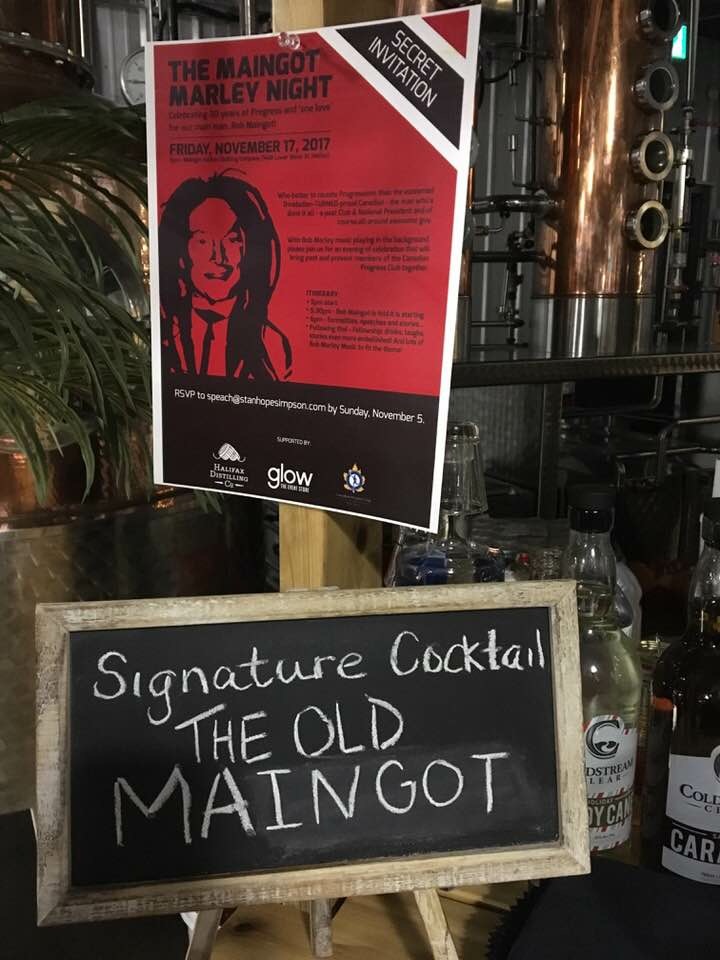 SECRET
INVITATION
THE MAINGOT
MARLEY NIGHT
Celebrating 30 years of Progress and 'one love
for our main man, Bob Maingot!
FRIDAY, NOVEMBER 17, 2017
Who better to rousete Progressives than the esteemed
Trinidadian-TURNED-proud Canadian - the man who's
done it all - a past Club & National President and of
course all around awesome guy.
With Bob Marley music playing in the background
please join us for an evening of celebration that will
bring past and present members of the Canadian
Progress Club together.
ITINERARY
* 5pm start
* 5:30pm - Bob Maingot is told it is starting
* 6pm - formalities, speeches and stories...
* Following that - Fellowship, drinks, laughs,
stories even more embellished! And lots of
Bob Marley Music to fit the theme!
RSVP to speach@stanhopesimpson.com by Sunday, November 5.
SUPPORTED BY
HALIFAX
DISTILLING
Co
glow
THE EVENT STORE
Signature Cocktail
THE OLD
MAINGOT
DSTREAM
LEAR
OLIDAY
DY CAN
COLD
CL
CAR